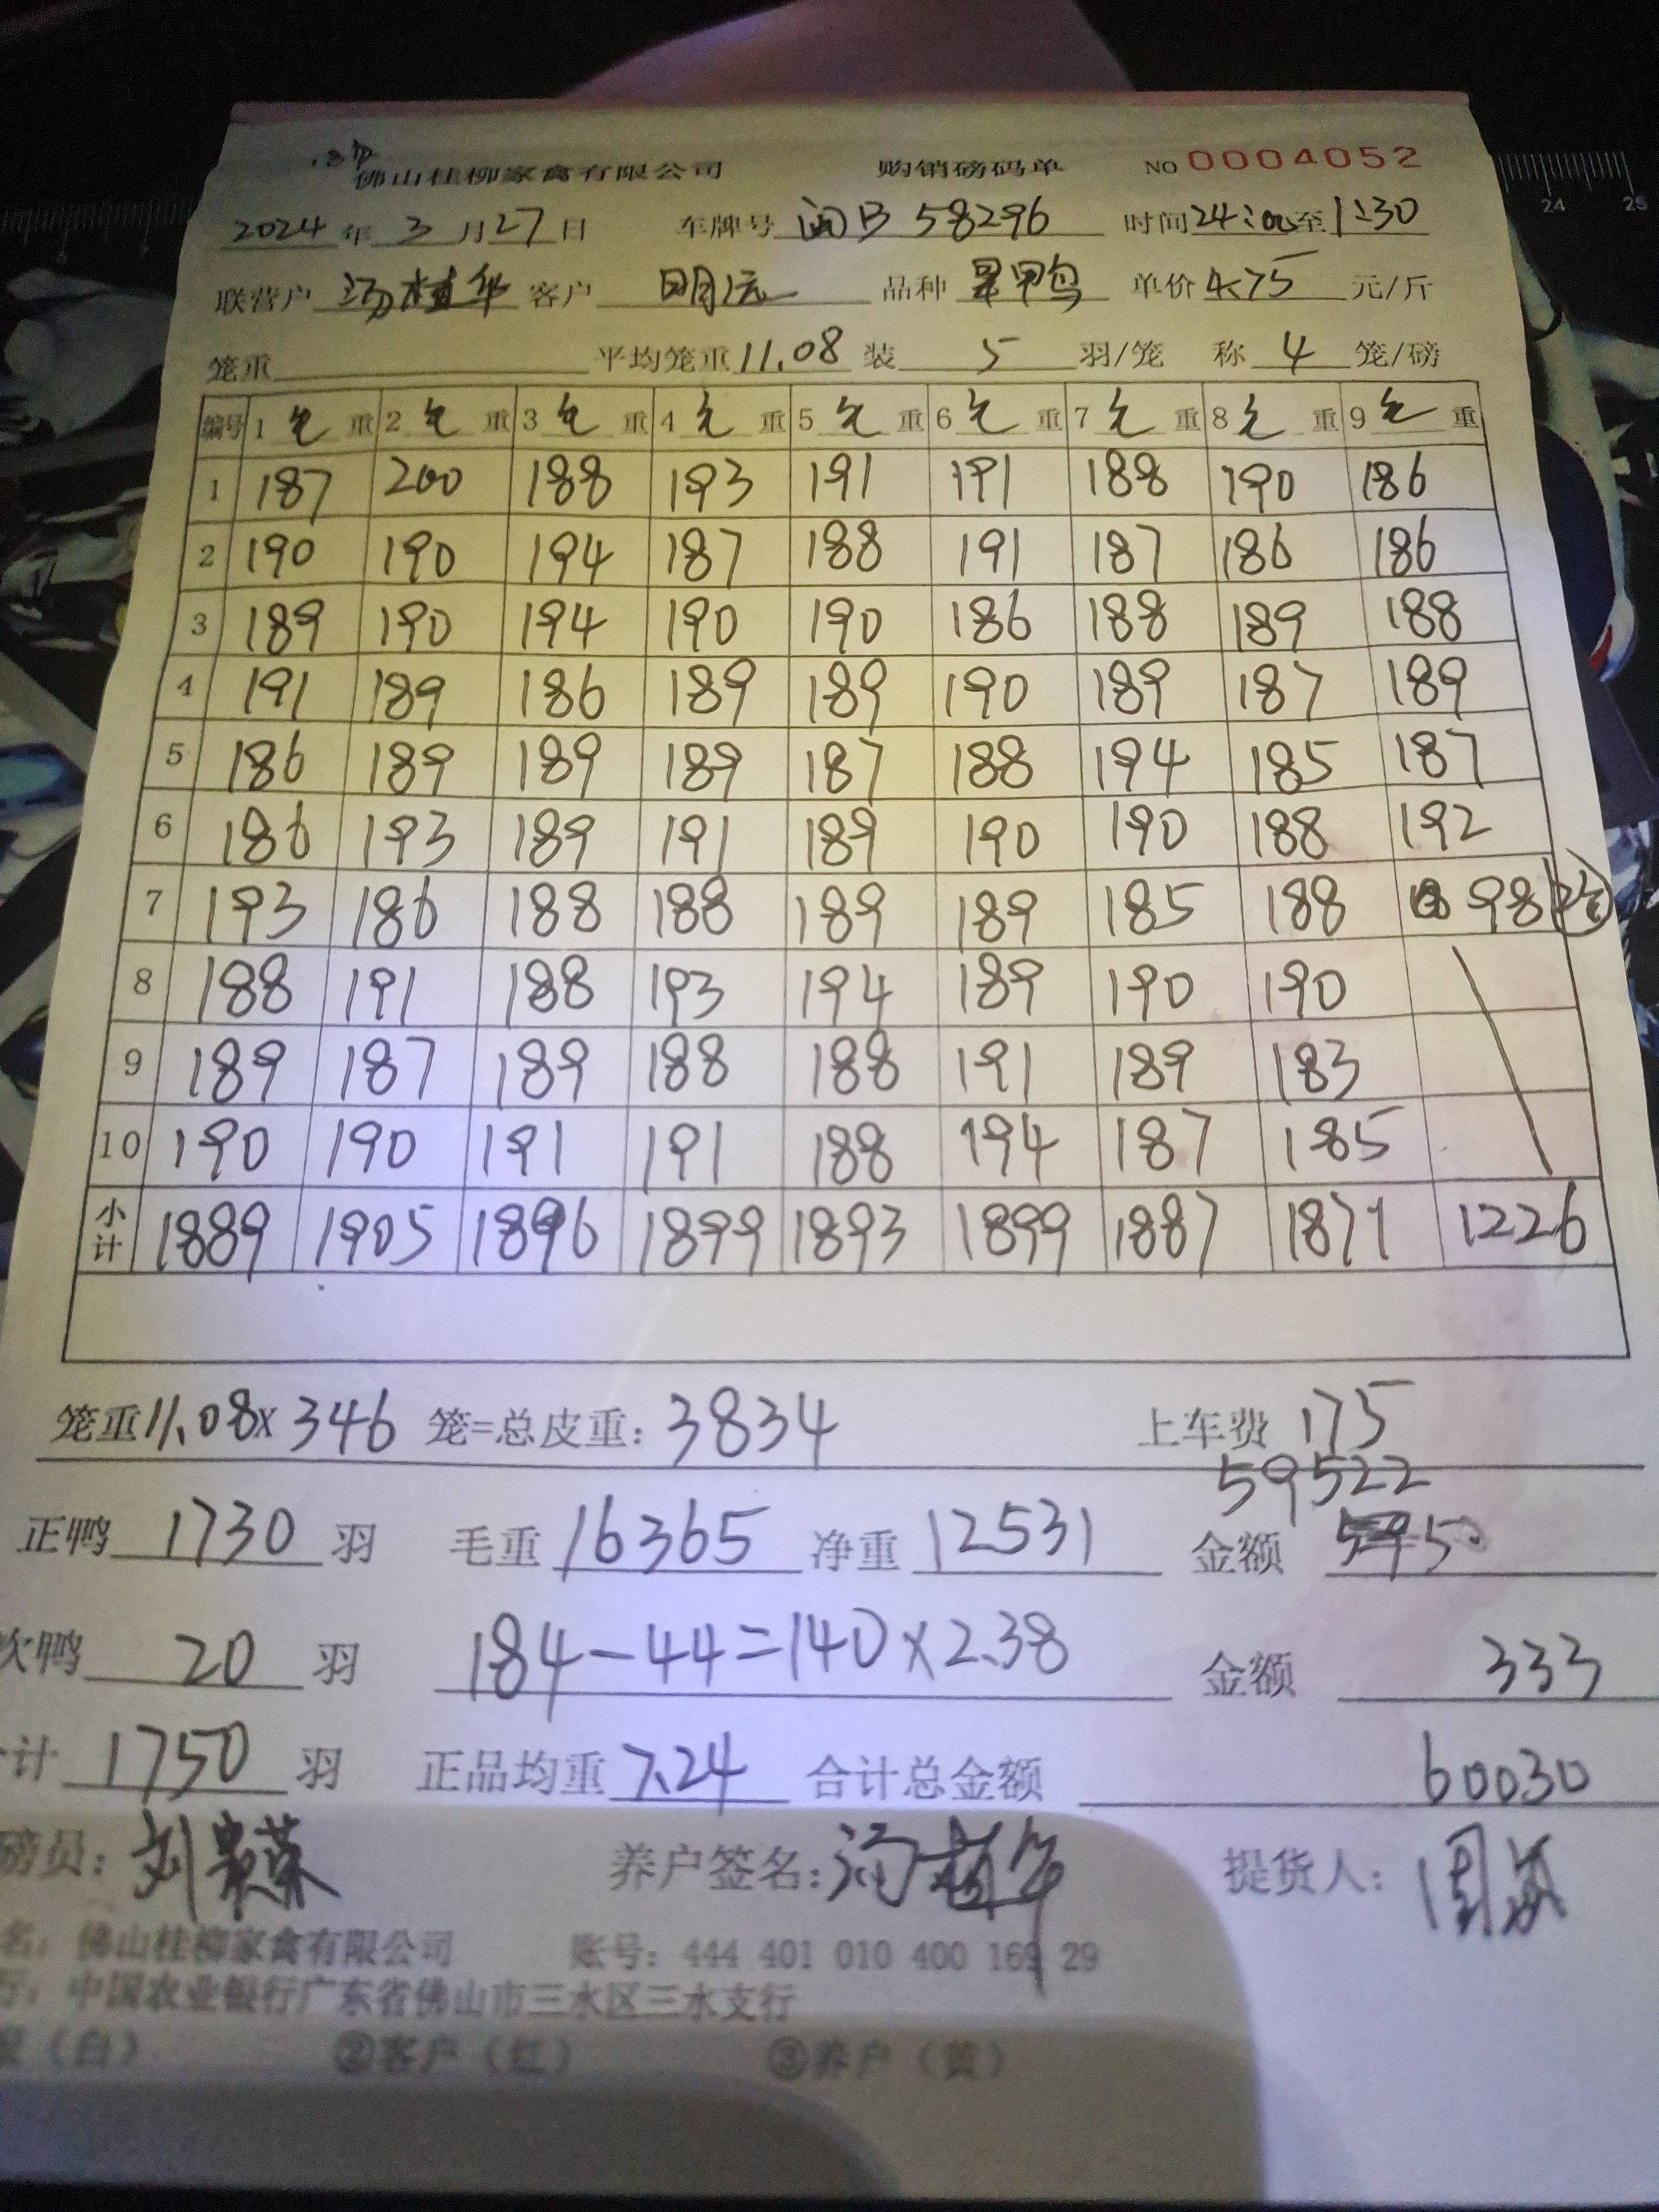 佛山桂柳家禽有限公司 购销磅码单 NO 0004052
2024 年 3 月 27 日 车牌号 闽B 58296 时间 24:00 至 1:30
联营户 汤植华 客户 明 品种 鸭 单价 4.75 元/斤
笼重 平均笼重 11.08 装 5 羽/笼 称 4 笼/磅
编号 1 毛 重 2 毛 重 3 毛 重 4 毛 重 5 毛 重 6 毛 重 7 毛 重 8 毛 重 9 毛 重
1 187 200 188 193 191 191 188 190 186
2 190 190 194 187 188 191 187 186 186
3 189 190 194 190 190 186 188 189 188
4 191 189 186 189 189 190 189 187 189
5 186 189 189 189 187 188 194 185 187
6 186 193 189 191 189 190 190 188 192
7 193 186 188 188 189 189 185 188 98
8 188 191 188 193 194 189 190 190
9 189 187 189 188 188 191 189 183
10 190 190 191 191 188 194 187 185
小计 1889 1905 1896 1899 1893 1899 1887 1871 1226
笼重 11.08 x 346 笼=总皮重: 3834 上车费 175
59522
正鸭 1730 羽 毛重 16365 净重 12531 金额
次鸭 20 羽 184-44=140×2.38 金额 333
计 1750 羽 正品均重 7.24 合计总金额 60030
磅员: 刘 荣 养户签名: 汤植华 提货人: 周
名: 佛山桂柳家禽有限公司 账号: 444 401 010 400 169 29
行: 中国农业银行广东省佛山市三水区三水支行
(白) ②客户(红) ③养户(黄)